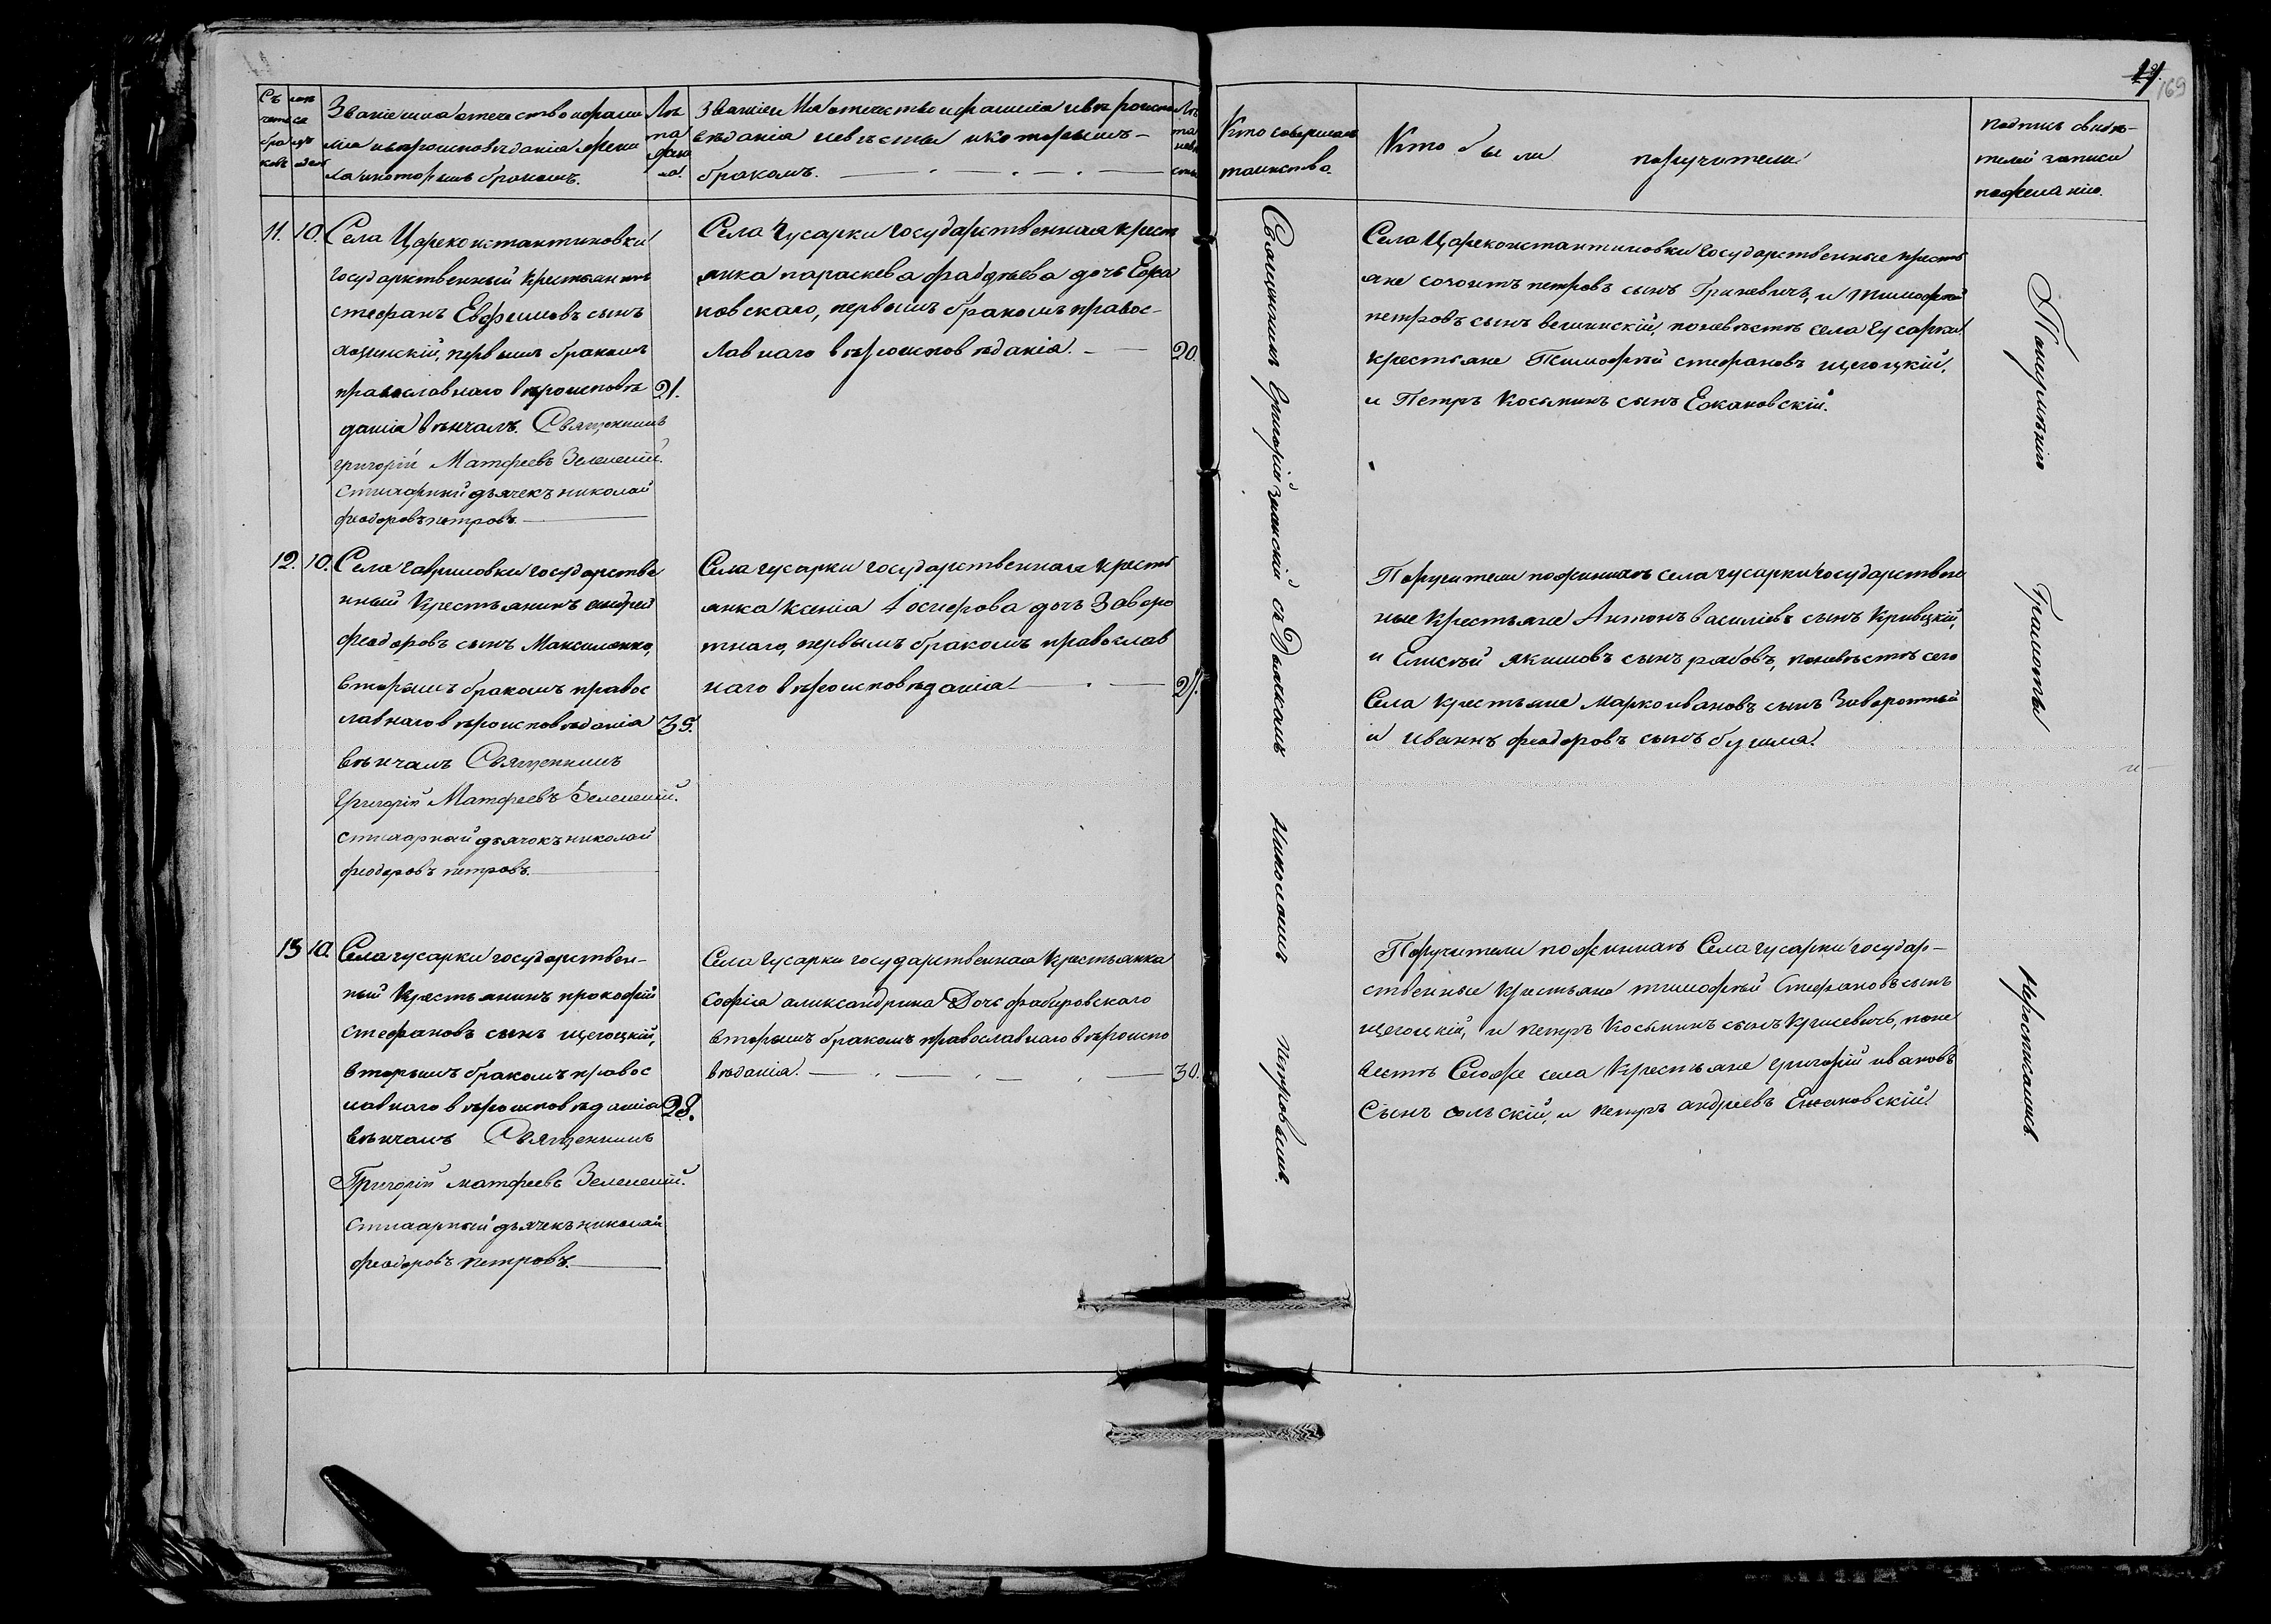 14.
169
Съ
четъ
бра
ковъ
Званіе имя отечество и фами
лія и вѣроисповѣданіе жени
ха и которымъ бракомъ.
Лѣ
та
жени
ха.
Званіе Имя отечество и фамилія и вѣроиспо
вѣданія невѣсты и которымъ
бракомъ.
Лѣ
та
невѣ
сты
Кто совершалъ
таинство.
Кто были поручители
Подпись свидѣ-
телей записи
по желанію.
11. 10. Села Цареконстантиновки
государственный крестьянинъ
стефанъ Евфимовъ сынъ
первымъ бракомъ
православнаго вѣроисповѣ 21.
данія вѣнчалъ. Священникъ
григорій Матфеевъ Зеленскій.
стихарный дьячекъ николай
феодоровъ петровъ.
Села Гусарки Государственная крестъ
янка параскева фаддѣева дочь Ежа
новскаго, первымъ бракомъ правос-
лавнаго вѣроисповѣданія. 20.
Села Цареконстантиновки Государственные кресть
яне созонтъ петровъ сынъ Гриневичъ, и тимофей
петровъ сынъ величскій, по невѣстѣ села Гусарки
крестьяне Тимофѣй стефановъ щегоцкій,
и Петръ Косьминъ сынъ Ежановскій.
12. 10. Села Гавриловки государстве
нный Крестьянинъ андрей
феодоровъ сынъ Максименко,
вторымъ бракомъ правос
лавнаго вѣроисповѣданія 35.
вѣнчалъ Священникъ
Григорій Матфеевъ Зеленскій.
стихарный дьячокъ николай
феодоровъ петровъ.
Села гусарки государственная кресть
янка ксенія Іосифова дочь Заворо
тнаго, первымъ бракомъ православ
наго вѣроисповѣданія 21.
Поручители по женихѣ села гусарки государствен
ные крестьяне Антонъ василіевъ сынъ Кривцкій,
и Елисѣй якимовъ сынъ рябовъ, по невѣстѣ сего
Села крестьяне Марко ивановъ сынъ Заворотный
и иваннъ феодоровъ сынъ бугима.
13 10. Села гусарки государствен-
ный Крестьянинъ прокофій
стефановъ сынъ щегоцкій,
вторымъ бракомъ правос
лавнаго вѣроисповѣданія 28.
вѣнчалъ Священникъ
Григорій матфеевъ Зеленскій.
стихарный дьячекъ николай
феодоровъ петровъ.
Села Гусарки государственная Крестьянка
софія александрина Дочь фабировскаго
вторымъ бракомъ православнаго вѣроиспо
вѣданія. 30.
Поручители по женихѣ Села гусарки государ-
ственные Крестьяне тимофѣй Стефановъ сынъ
щегоцкій, и петръ Косьминъ сынъ Кулисевичъ, по не
вѣстѣ Сегоже села Крестьяне григорій ивановъ
Сынъ сольскій, и петръ андреевъ Ежановскій.
Священникъ Григорій Зеленскій съ Дьячкомъ Николаемъ Петровымъ.
По неимѣнію Грамоты Неросписались.